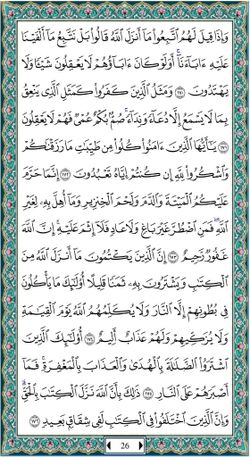 وَإِذَا قِيلَ لَهُمُ ٱتَّبِعُوا۟ مَآ أَنزَلَ ٱللَّهُ قَالُوا۟ بَلْ نَتَّبِعُ مَآ أَلْفَيْنَا
عَلَيْهِ ءَابَآءَنَآ ۗ أَوَلَوْ كَانَ ءَابَآؤُهُمْ لَا يَعْقِلُونَ شَيْـًٔا وَلَا
يَهْتَدُونَ ١٧٠ وَمَثَلُ ٱلَّذِينَ كَفَرُوا۟ كَمَثَلِ ٱلَّذِى يَنْعِقُ
بِمَا لَا يَسْمَعُ إِلَّا دُعَآءً وَنِدَآءً ۚ صُمٌّۢ بُكْمٌ عُمْىٌ فَهُمْ لَا يَعْقِلُونَ
١٧١ يَـٰٓأَيُّهَا ٱلَّذِينَ ءَامَنُوا۟ كُلُوا۟ مِن طَيِّبَـٰتِ مَا رَزَقْنَـٰكُمْ
وَٱشْكُرُوا۟ لِلَّهِ إِن كُنتُمْ إِيَّاهُ تَعْبُدُونَ ١٧٢ إِنَّمَا حَرَّمَ
عَلَيْكُمُ ٱلْمَيْتَةَ وَٱلدَّمَ وَلَحْمَ ٱلْخِنزِيرِ وَمَآ أُهِلَّ بِهِۦ لِغَيْرِ
ٱللَّهِ ۖ فَمَنِ ٱضْطُرَّ غَيْرَ بَاغٍ وَلَا عَادٍ فَلَآ إِثْمَ عَلَيْهِ ۚ إِنَّ ٱللَّهَ
غَفُورٌ رَّحِيمٌ ١٧٣ إِنَّ ٱلَّذِينَ يَكْتُمُونَ مَآ أَنزَلَ ٱللَّهُ مِنَ
ٱلْكِتَـٰبِ وَيَشْتَرُونَ بِهِۦ ثَمَنًا قَلِيلًا ۙ أُو۟لَـٰٓئِكَ مَا يَأْكُلُونَ
فِى بُطُونِهِمْ إِلَّا ٱلنَّارَ وَلَا يُكَلِّمُهُمُ ٱللَّهُ يَوْمَ ٱلْقِيَـٰمَةِ
وَلَا يُزَكِّيهِمْ وَلَهُمْ عَذَابٌ أَلِيمٌ ١٧٤ أُو۟لَـٰٓئِكَ ٱلَّذِينَ
ٱشْتَرَوُا۟ ٱلضَّلَـٰلَةَ بِٱلْهُدَىٰ وَٱلْعَذَابَ بِٱلْمَغْفِرَةِ ۚ فَمَآ
أَصْبَرَهُمْ عَلَى ٱلنَّارِ ١٧٥ ذَٰلِكَ بِأَنَّ ٱللَّهَ نَزَّلَ ٱلْكِتَـٰبَ بِٱلْحَقِّ ۗ
وَإِنَّ ٱلَّذِينَ ٱخْتَلَفُوا۟ فِى ٱلْكِتَـٰبِ لَفِى شِقَاقٍۭ بَعِيدٍ ١٧٦
26